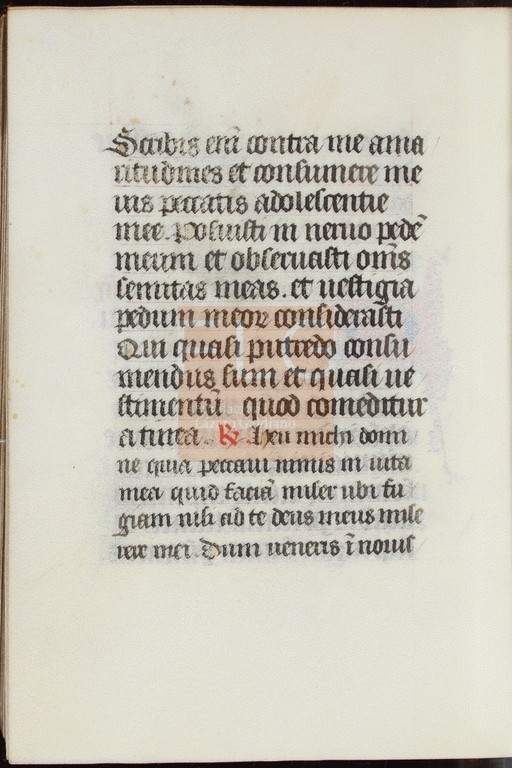 Scribis enī contra me ama
ritudines et consumere me
uis peccatis adolescentie
mee. Posuisti in neruo pedē
meum et obseruasti om̄s
semitas meas. et uestigia
pedum meoꝝ considerasti
Qui quasi putredo consu
mendus sum et quasi ue
stimentū quod comeditur
a tinea. ℟ Heu michi domi
ne quia peccaui nimis in uita
mea quid faciā miser ubi fu
giam nisi ad te deus meus mise
rere mei. Dum ueneris ī nouis